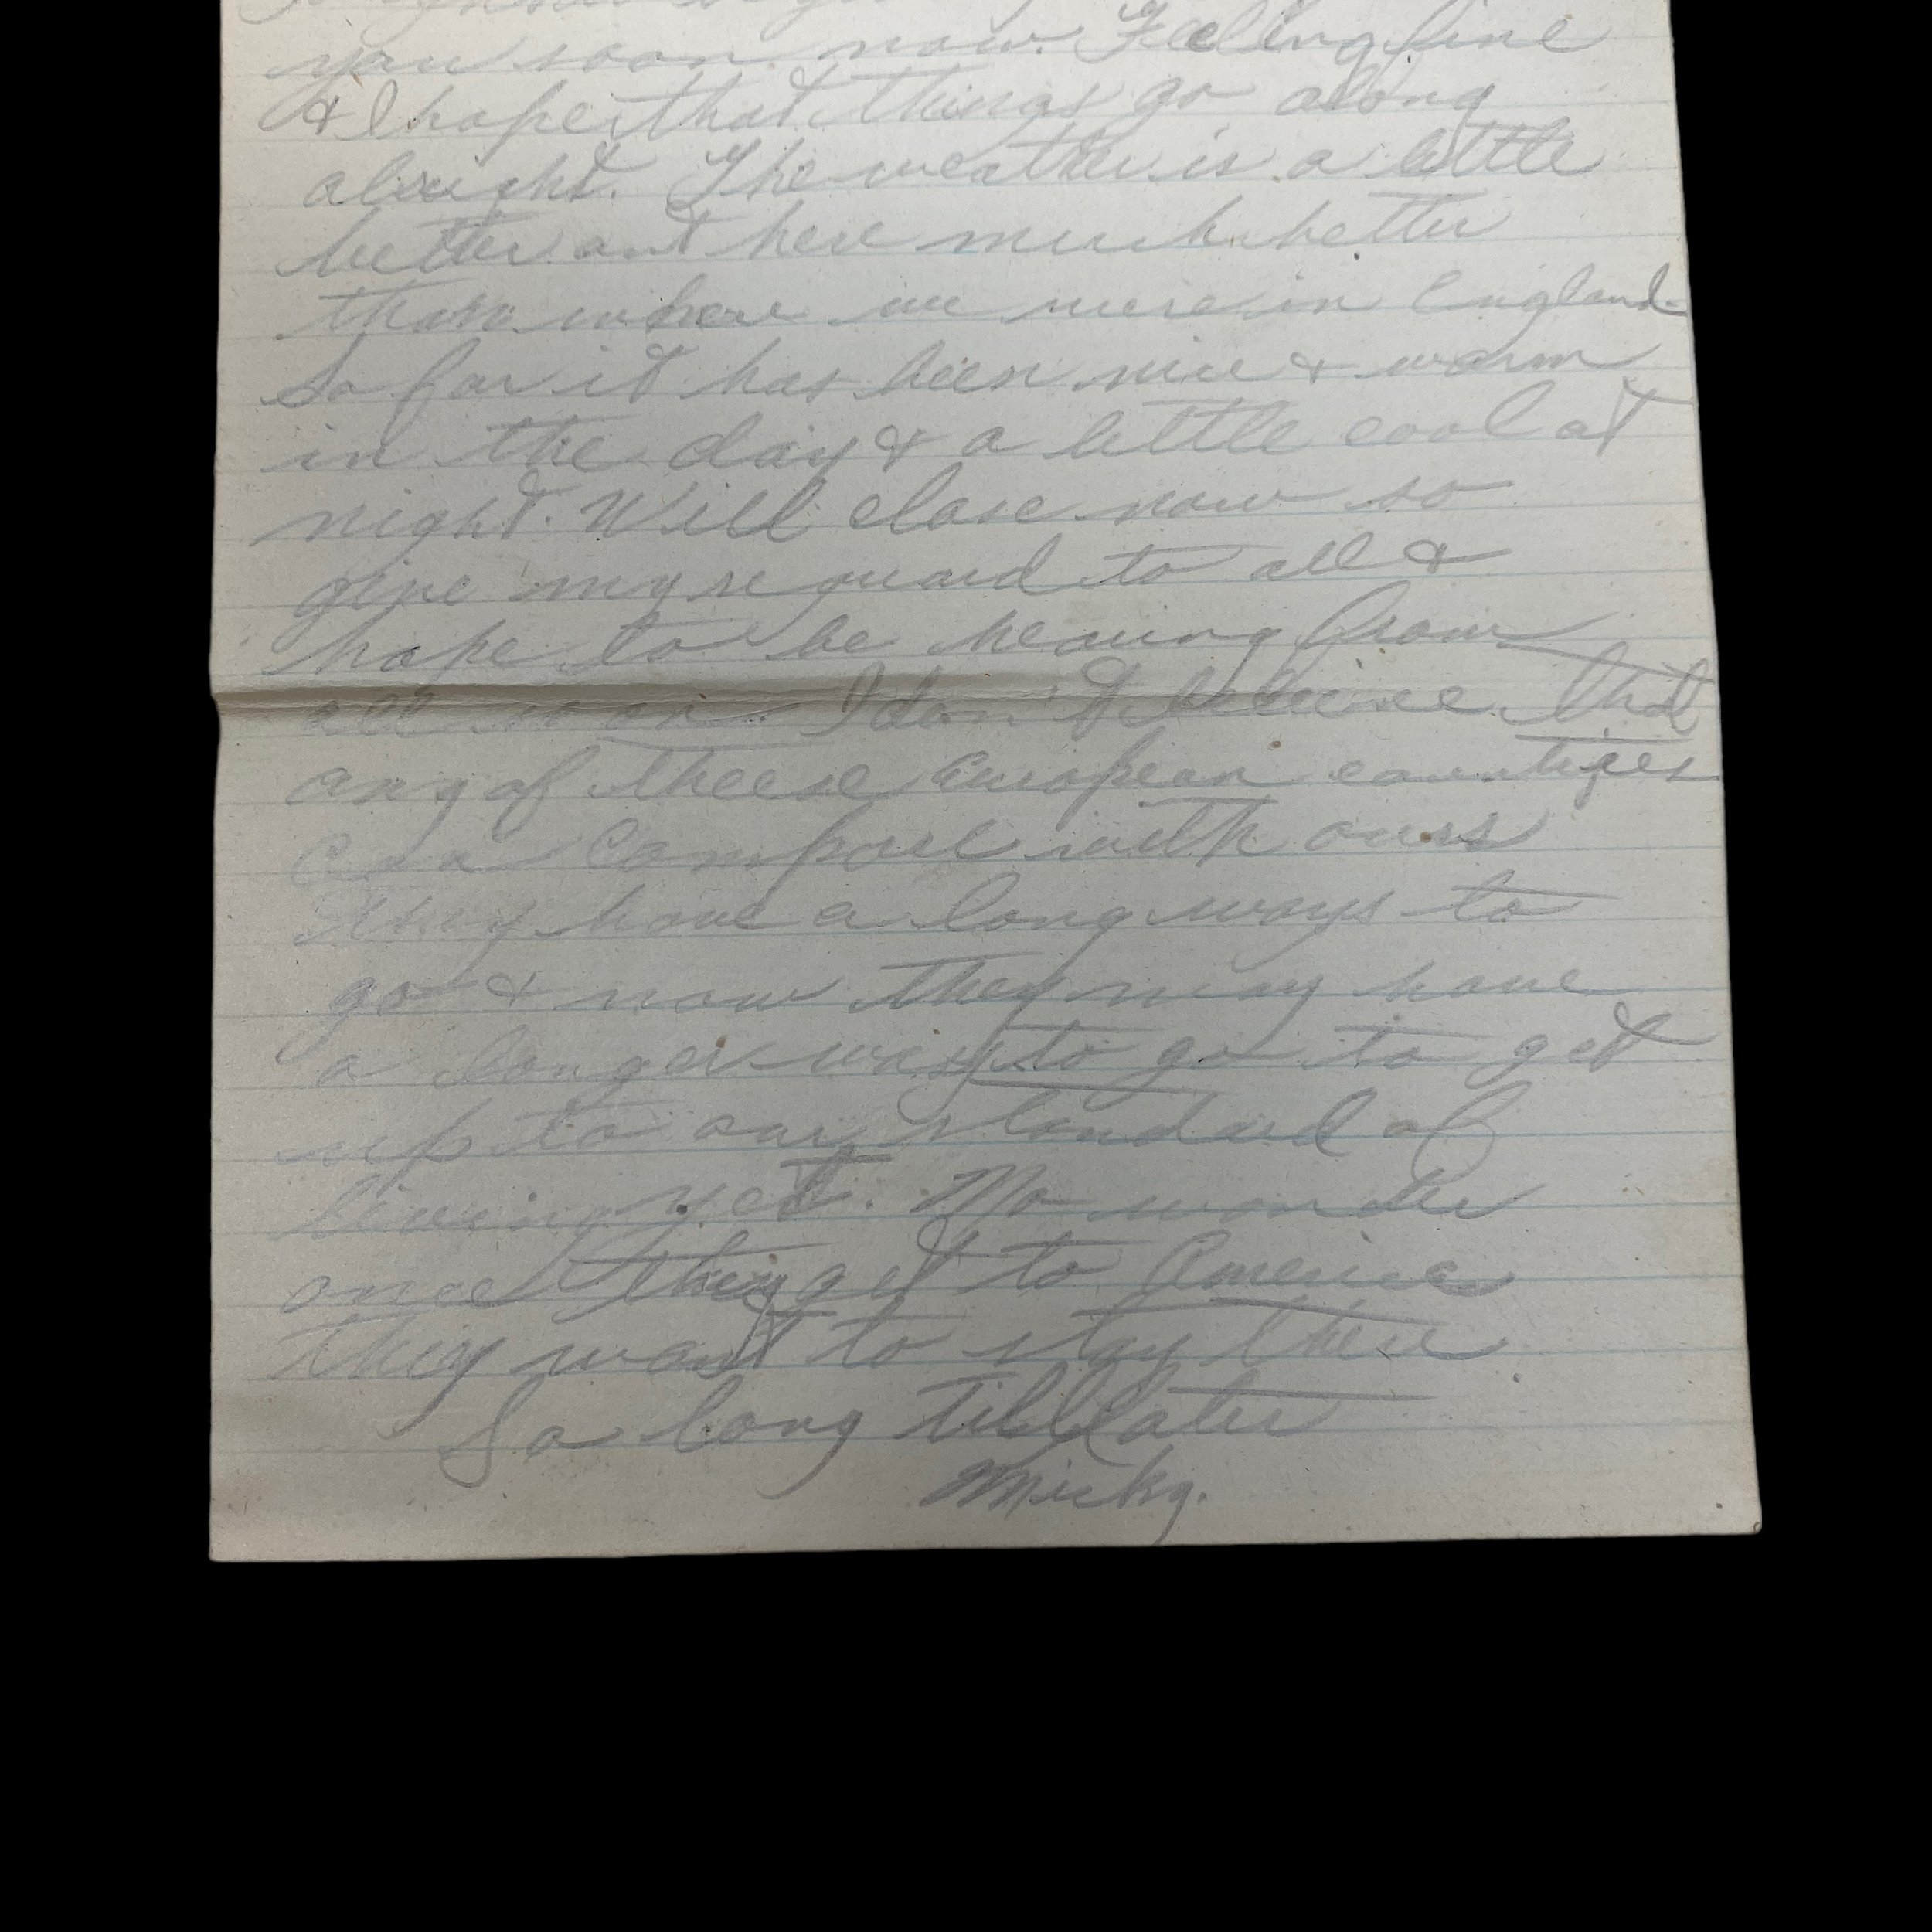 you soon now. Feeling fine
& I hope that things go along
alright. The weather is a little
better out here much better
than where we were in England.
So far it has been nice & warm
in the day & a little cool at
night. Will close now so
give my reguard to all &
hope to be hearing from
all soon. I don't believe that
any of theese European countries
can compare with ours
they have a long ways to
go & now they may have
a longer way to go to get
up to our standard of
living yet. No wonder
once they get to America
they want to stay there
So long till later
Micky.